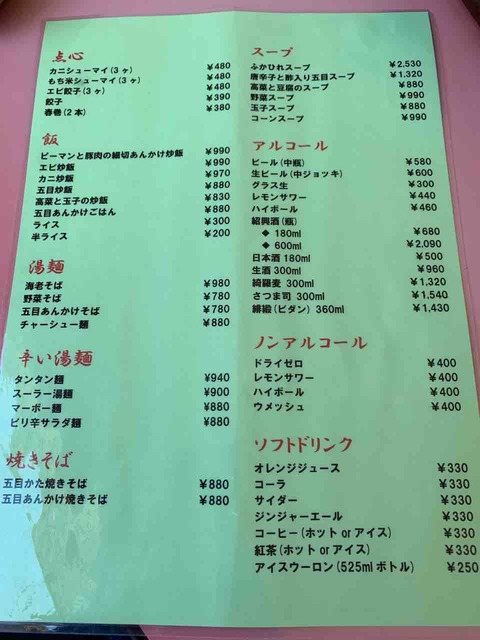 点心
カニシューマイ(3ヶ) ¥480
もち米シューマイ(3ヶ) ¥480
エビ餃子(3ヶ) ¥480
餃子 ¥390
春巻(2本) ¥380
飯
ピーマンと豚肉の細切あんかけ炒飯 ¥990
エビ炒飯 ¥990
カニ炒飯 ¥970
五目炒飯 ¥880
高菜と玉子の炒飯 ¥830
五目あんかけごはん ¥880
ライス ¥300
半ライス ¥200
湯麺
海老そば ¥980
野菜そば ¥780
五目あんかけそば ¥780
チャーシュー麺 ¥880
辛い湯麺
タンタン麺 ¥940
スーラー湯麺 ¥900
マーボー麺 ¥880
ピリ辛サラダ麺 ¥880
焼きそば
五目かた焼きそば ¥880
五目あんかけ焼きそば ¥880
スープ
ふかひれスープ ¥2,530
唐辛子と酢入り五目スープ ¥1,320
高菜と豆腐のスープ ¥880
野菜スープ ¥990
玉子スープ ¥880
コーンスープ ¥990
アルコール
ビール(中瓶) ¥580
生ビール(中ジョッキ) ¥600
グラス生 ¥300
レモンサワー ¥440
ハイボール ¥460
紹興酒(瓶)
◆ 180ml ¥680
◆ 600ml ¥2,090
日本酒 180ml ¥500
生酒 300ml ¥960
綺羅麦 300ml ¥1,320
さつま司 300ml ¥1,540
緋緞(ビダン) 360ml ¥1,430
ノンアルコール
ドライゼロ ¥400
レモンサワー ¥400
ハイボール ¥400
ウメッシュ ¥400
ソフトドリンク
オレンジジュース ¥330
コーラ ¥330
サイダー ¥330
ジンジャーエール ¥330
コーヒー(ホット or アイス) ¥330
紅茶(ホット or アイス) ¥330
アイスウーロン(525ml ボトル) ¥250